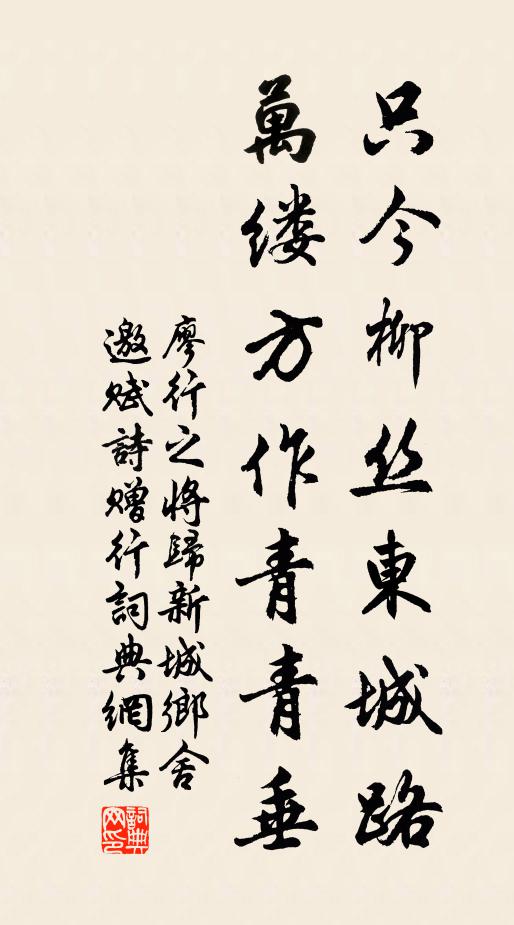 只今柳丝東城路
萬缕方作青青垂
廖行之将歸新城鄉舍
邀赋詩赠行詞典網集
詞典
网印